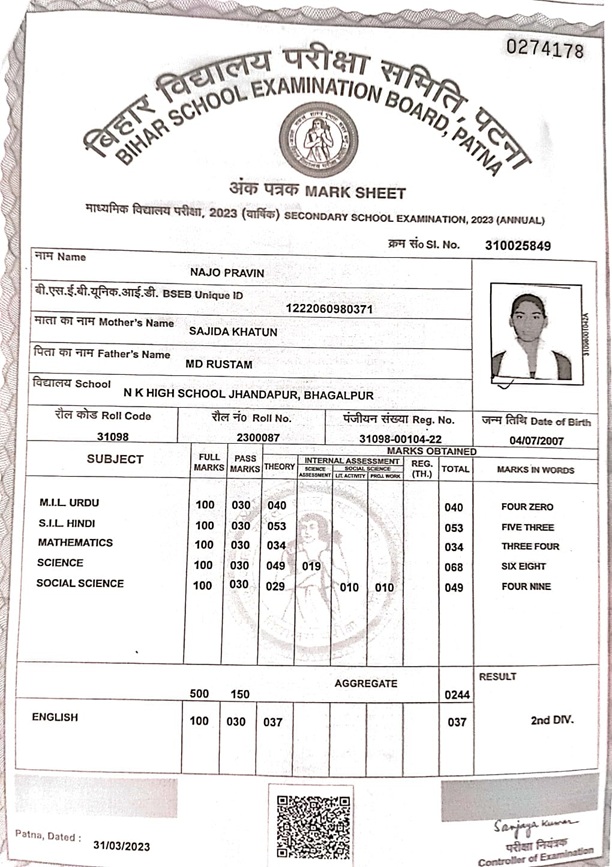 0274178
बिहार विद्यालय परीक्षा समिति, पटना
BIHAR SCHOOL EXAMINATION BOARD, PATNA
अंक पत्रक MARK SHEET
माध्यमिक विद्यालय परीक्षा, 2023 (वार्षिक) SECONDARY SCHOOL EXAMINATION, 2023 (ANNUAL)
क्रम सं० Sl. No. 310025849
नाम Name
NAJO PRAVIN
बी.एस.ई.बी.यूनिक.आई.डी. BSEB Unique ID
1222060980371
माता का नाम Mother's Name
SAJIDA KHATUN
पिता का नाम Father's Name
MD RUSTAM
विद्यालय School
N K HIGH SCHOOL JHANDAPUR, BHAGALPUR
रौल कोड Roll Code रौल नं० Roll No. पंजीयन संख्या Reg. No. जन्म तिथि Date of Birth
31098 2300087 31098-00104-22 04/07/2007
SUBJECT FULL MARKS PASS MARKS MARKS OBTAINED
THEORY INTERNAL ASSESSMENT REG. (TH.) TOTAL MARKS IN WORDS
SCIENCE ASSESSMENT SOCIAL SCIENCE
LIT. ACTIVITY PROJ. WORK
M.I.L. URDU 100 030 040 040 FOUR ZERO
S.I.L. HINDI 100 030 053 053 FIVE THREE
MATHEMATICS 100 030 034 034 THREE FOUR
SCIENCE 100 030 049 019 068 SIX EIGHT
SOCIAL SCIENCE 100 030 029 010 010 049 FOUR NINE
AGGREGATE RESULT
500 150 0244
ENGLISH 100 030 037 037 2nd DIV.
Sanjaya Kumar
Patna, Dated : 31/03/2023
परीक्षा नियंत्रक
Controller of Examination